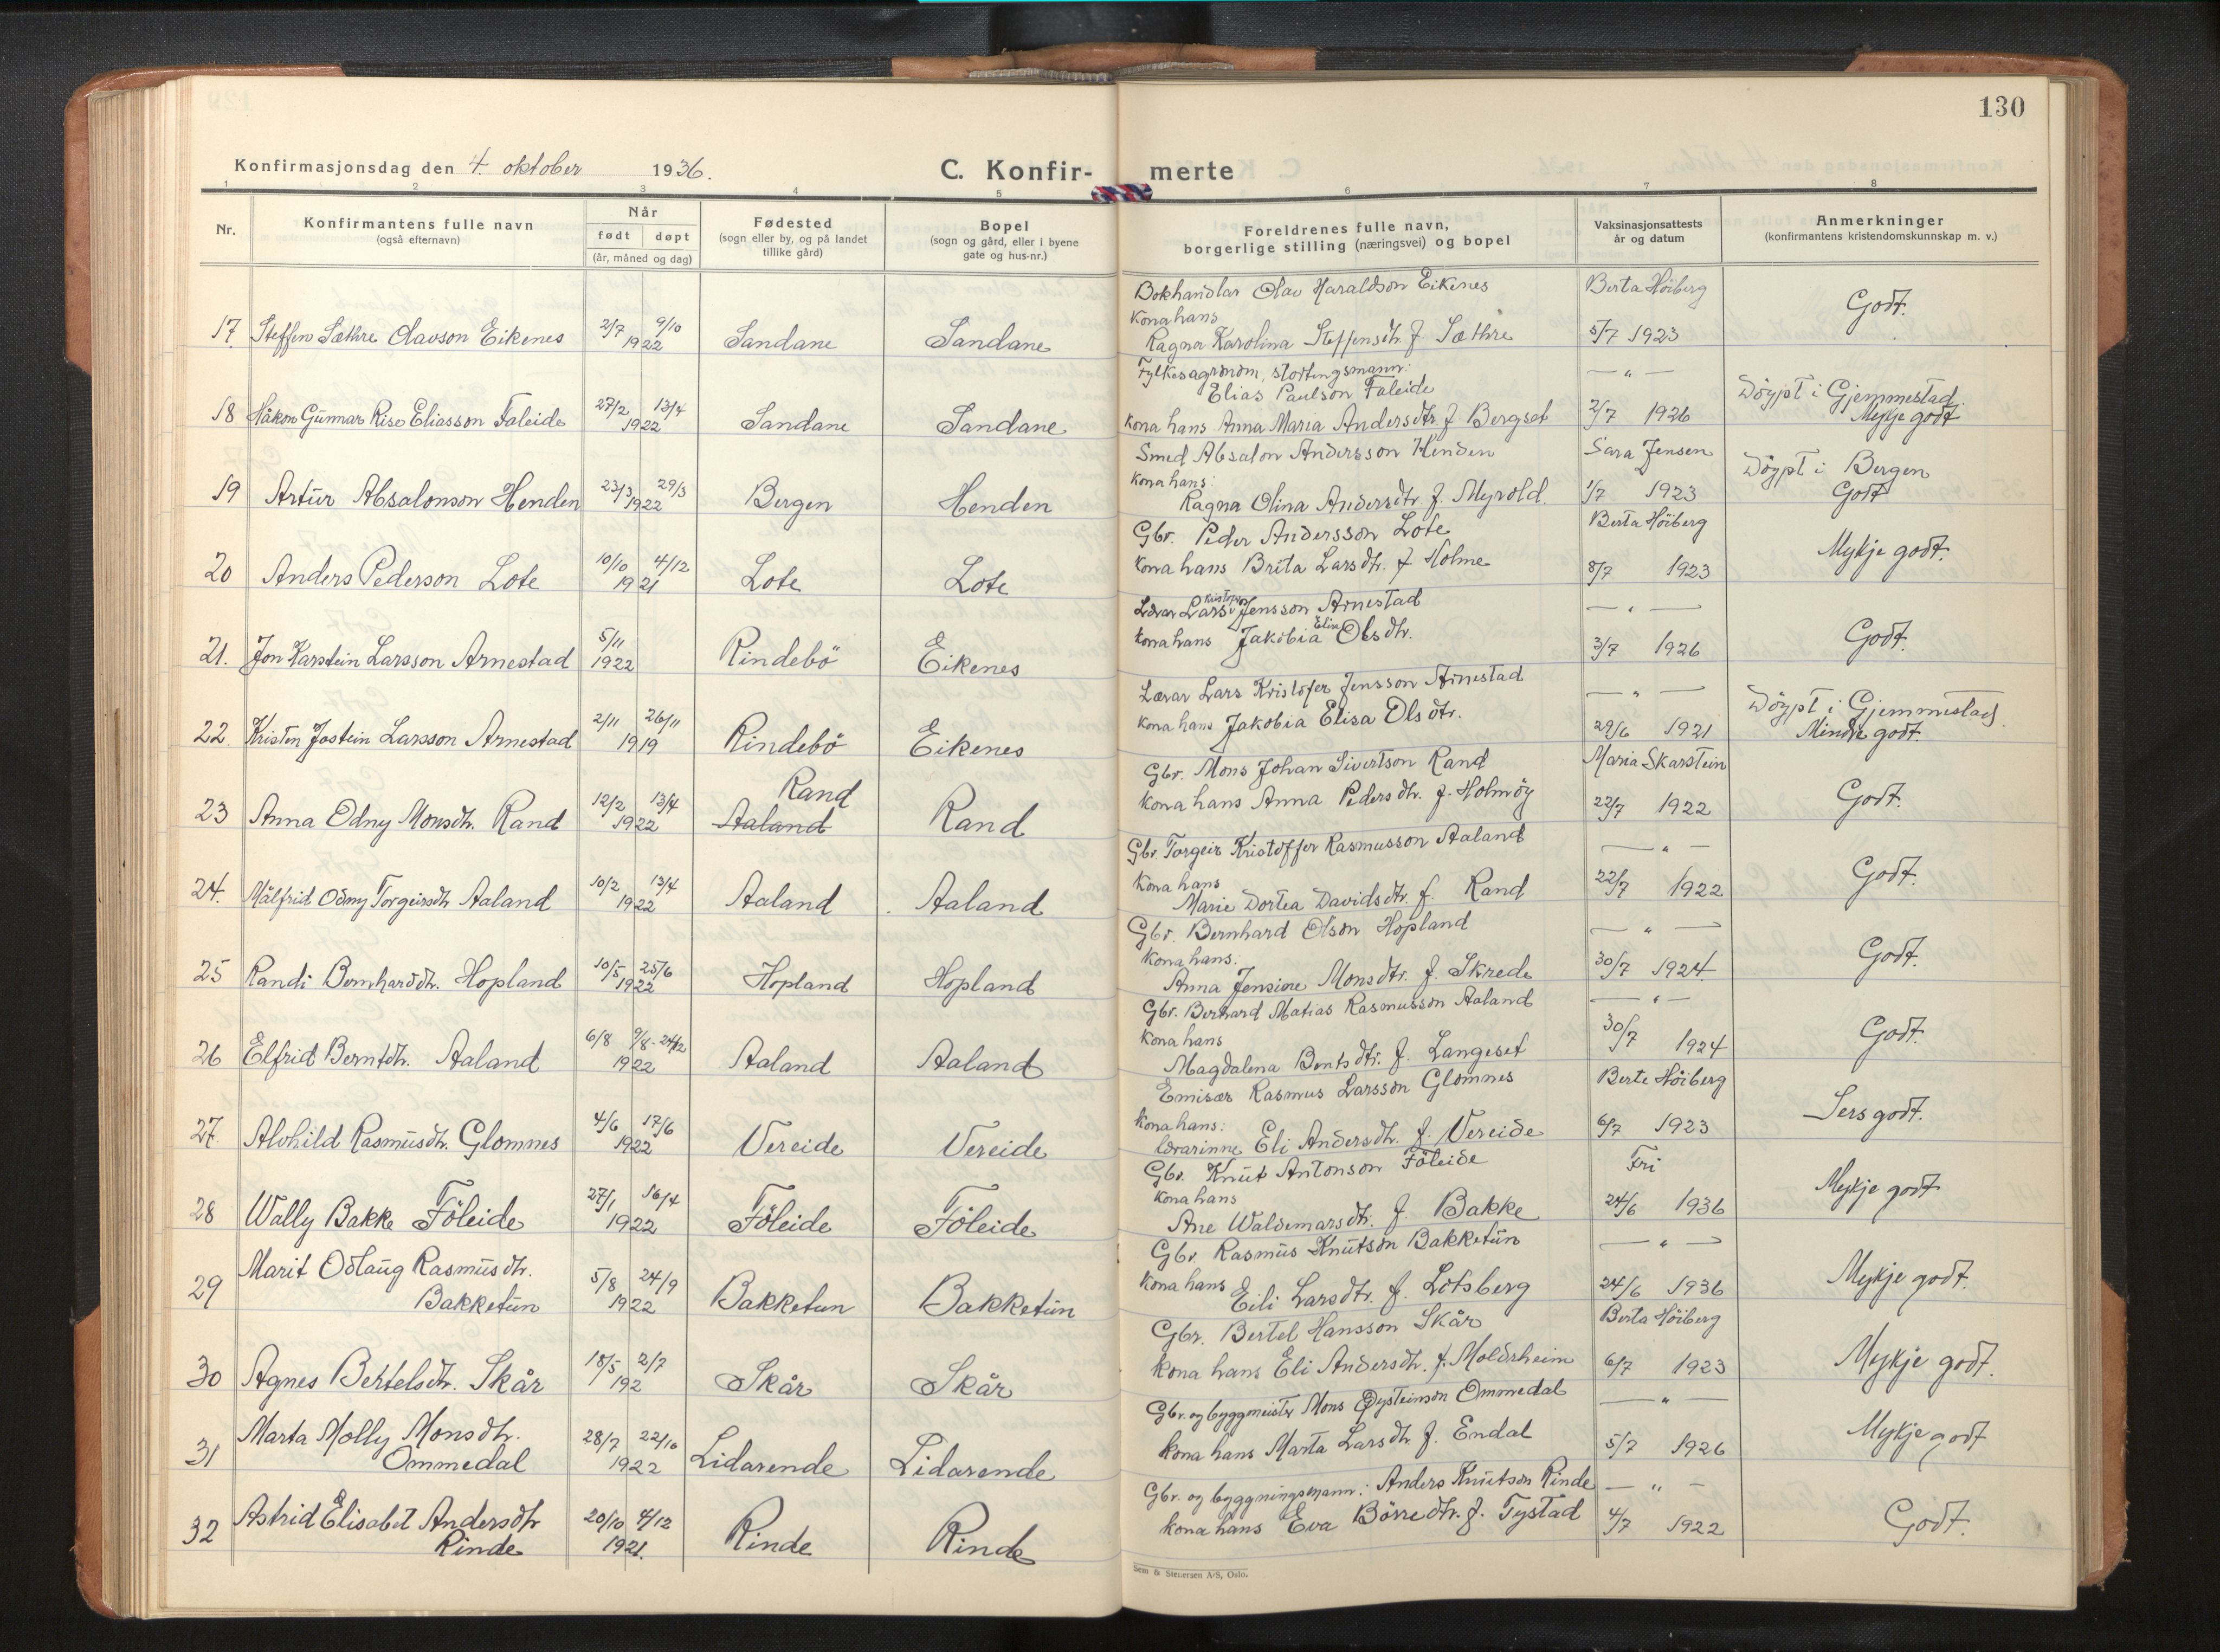 130
Konfirmasjonsdag den 4. oktober 1936.
C. Konfir- merte
1 2 3 4 5 6 7 8
Nr.
Konfirmantens fulle navn
(også efternavn)
Når
født døpt
(år, måned og dag)
Fødested
(sogn eller by, og på landet
tillike gård)
Bopel
(sogn og gård, eller i byene
gate og hus-nr.)
Foreldrenes fulle navn,
borgerlige stilling (næringsvei) og bopel
Vaksinasjonsattests
år og datum
Anmerkninger
(konfirmantens kristendomskunnskap m. v.)
17. Steffen Sæthre Olavson Eikenes 2/7 9/10 1922 Sandane Sandane
Bokhandlar Olav Haraldson Eikenes
kona hans
Ragna Karolina Steffensdtr. f. Sæthre
Berta Höiberg
5/7 1923
Godt.
18 Håkon Gunnar Rise Eliasson Faleide 27/2 13/4 1922 Sandane Sandane
Fylkesagronom, stortingsmann:
Elias Paulson Faleide
kona hans Anna Maria Andersdtr. f. Bergset
— " —
2/7 1926
Döypt i Gjemmestad.
Mykje godt
19 Artur Absalonson Henden 23/3 29/3 1922 Bergen Henden
Smed Absalon Andersson Henden
kona hans:
Ragna Olina Andersdtr. f. Myrold.
Sara Jensen
1/7 1923
Döypt i Bergen
Godt
20 Anders Pederson Lote 10/10 4/12 1921 Lote Lote
Gbr. Peder Andersson Lote
kona hans Brita Larsdtr. f. Holme
Berta Höiberg
8/7 1923
Mykje godt.
21. Jon Karstein Larsson Arnestad 5/11 1922 Rindebö Eikenes
Lærar Lars Kristofer Jensson Arnestad
kona hans Jakobia Elisa Olsdtr.
— " —
3/7 1926
Godt.
22. Kristen Jostein Larsson Arnestad 2/11 26/11 1919 Rindebö Eikenes
Lærar Lars Kristofer Jensson Arnestad
kona hans Jakobia Elisa Olsdtr.
— " —
29/6 1921
Döypt i Gjemmestad.
Mindre godt.
23 Anna Odny Monsdtr. Rand 12/2 13/4 1922 Rand Aaland Rand
Gbr. Mons Johan Sivertson Rand
kona hans Anna Pedersdtr. f. Holmöy
Maria Skarstein
22/7 1922
Godt.
24. Målfrid Odny Torgeirsdtr. Aaland 10/2 13/4 1922 Aaland Aaland
Gbr. Torgeir Kristoffer Rasmusson Aaland
kona hans
Marie Dortea Davidsdtr. f. Rand
— " —
22/7 1922
Godt.
25 Randi Bernhardsdtr. Hopland 10/5 25/6 1922 Hopland Hopland
Gbr. Bernhard Olson Hopland
kona hans.
Anna Jensine Monsdtr. f. Skrede
— " —
30/7 1924.
Godt.
26 Elfrid Berntdtr. Aaland 6/8 9/8 - 24/12 1922 Aaland Aaland
Gbr. Bernhard Matias Rasmusson Aaland
kona hans
Magdalena Bentsdtr. f. Langeset
— " —
30/7 1924
Godt.
27. Alvhild Rasmusdtr. Glomnes 4/6 17/6 1922 Vereide Vereide
Emisær Rasmus Larsson Glomnes
kona hans:
lærarinne Eli Andersdtr. f. Vereide
Berte Höiberg
6/7 1923
Sers godt.
28 Wally Bakke Föleide 27/1 16/4 1922 Föleide Föleide
Gbr. Knut Antonson Föleide
kona hans
Ane Waldemarsdtr. f. Bakke
Fri
24/6 1936
Mykje godt
29 Marit Odlaug Rasmusdtr.
Bakketun 5/8 24/9 1922 Bakketun Bakketun
Gbr. Rasmus Knutson Bakketun
kona hans Eili Larsdtr. f. Lotsberg
— " —
24/6 1936
Mykje godt.
30 Agnes Bertelsdtr. Skår 18/5 2/7 192 Skår Skår
Gbr. Bertel Hansson Skår
kona hans Eli Andersdtr. f. Moldrheim
Berta Höiberg
6/7 1923
Mykje godt.
31 Marta Molly Monsdtr.
Ommedal 28/7 22/10 1922 Lidarende Lidarende
Gbr. og byggmeister Mons Øysteinson Ommedal
kona hans Marta Larsdtr. f. Endal
— " —
5/7 1926
Mykje godt
32 Astrid Elisabet Andersdtr
Rinde 20/10 4/12 1921. Rinde Rinde
Gbr. og byggningsmann: Anders Knutson Rinde
kona hans Eva Börredtr. f. Tystad
— " —
4/7 1922
Godt.
Sem & Stenersen A/S, Oslo.